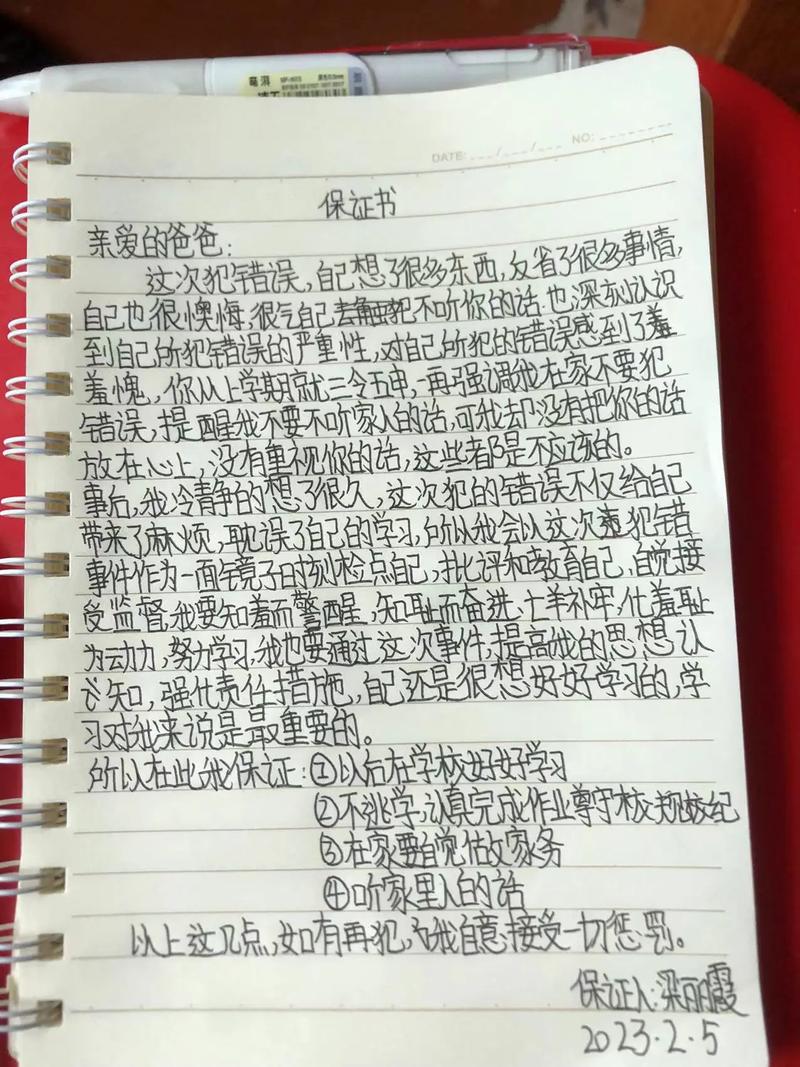 DATE: NO:
保证书
亲爱的爸爸:
这次犯错误,自己想了很多东西,反省了很多事情,
自己也很懊悔,很气自己去触犯不听你的话.也深刻认识
到自己所犯错误的严重性,对自己所犯的错误感到了羞
羞愧,你从上学期就三令五申,一再强调我在家不要犯
错误,提醒我不要不听家人的话,可我却没有把你的话
放在心上,没有重视你的话,这些都是不应该的。
事后,我冷静的想了很久,这次犯的错误不仅给自己
带来了麻烦,耽误了自己的学习,所以我会以这次违犯错
事件作为一面镜子时刻检点自己,批评和教育自己,自觉接
受监督,我要知羞而警醒,知耻而奋进,亡羊补牢,化羞耻
为动力,努力学习,我也要通过这次事件,提高我的思想认
知,强化责任措施,自己还是很想好好学习的,学
习对我来说是最重要的。
所以在此我保证:①以后在学校好好学习
②不逃学,认真完成作业尊守校规校纪
③在家要自觉做家务
④听家里人的话
以上这几点,如有再犯,我自意接受一切惩罚。
保证人:梁丽霞
2023.2.5